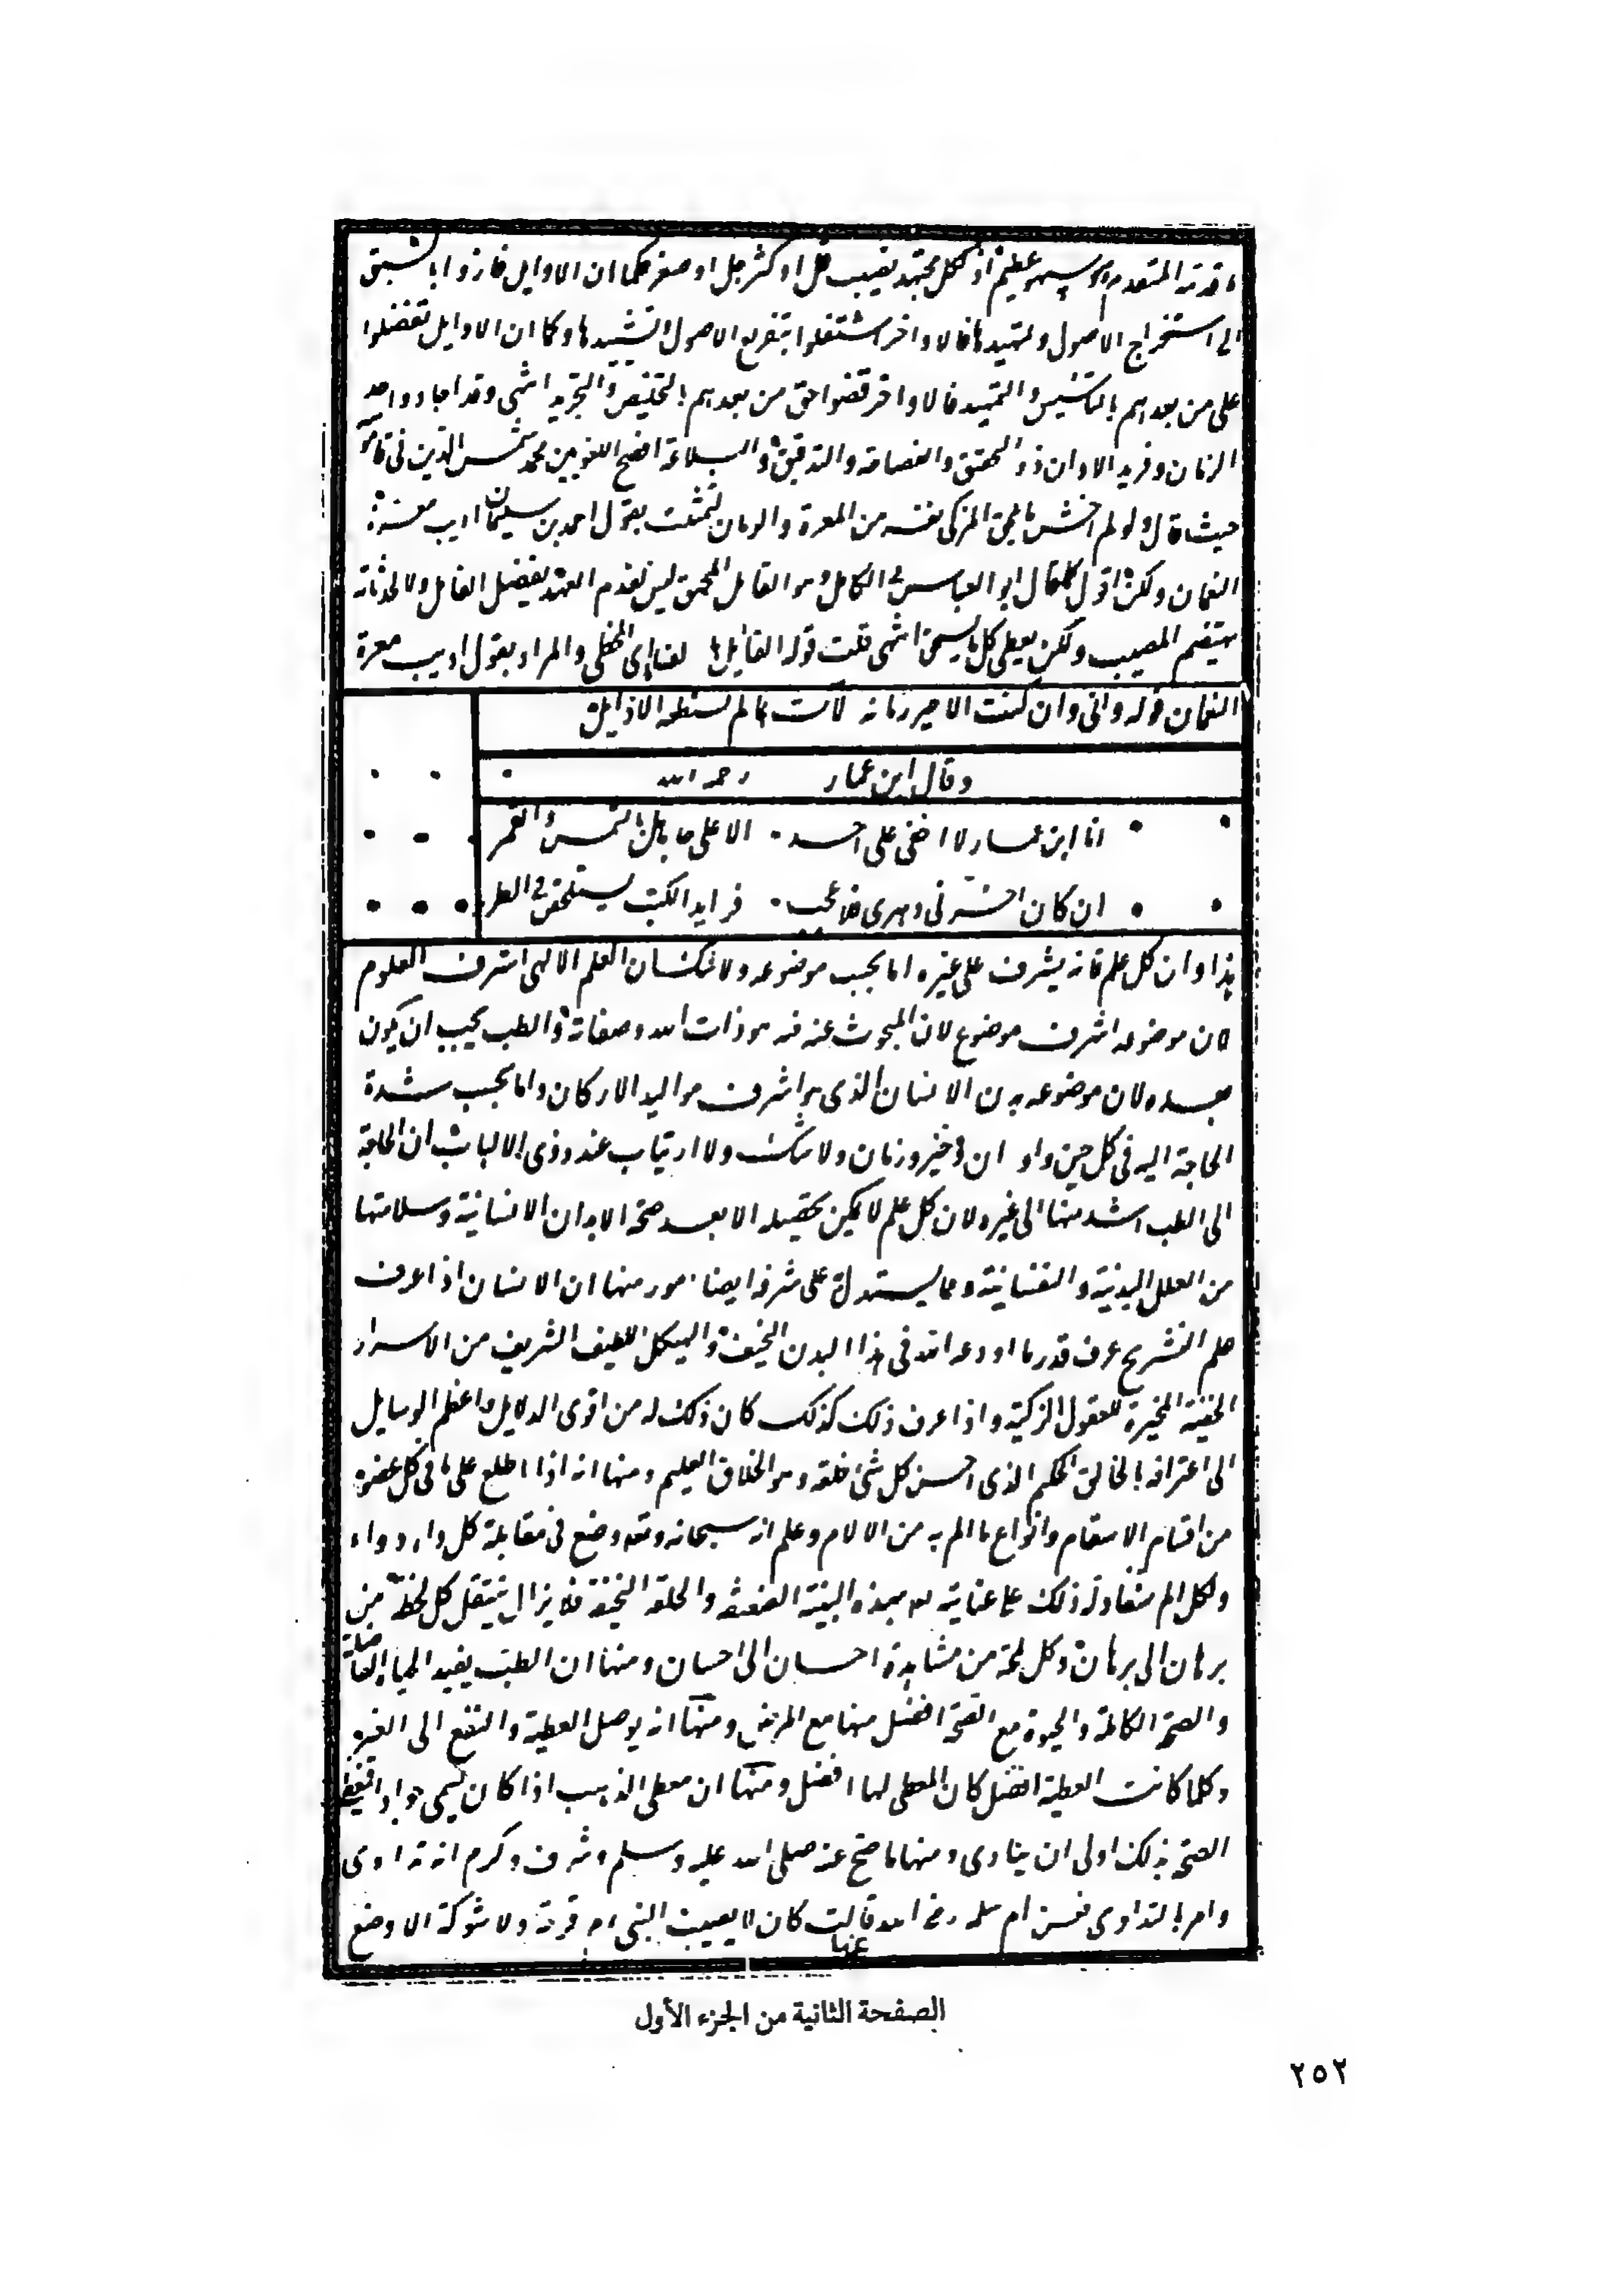 ما قدمه المتقدم الا وسهم عظيم اذ لكل مجتهد نصيب قل او كثر جل او صغر فكما ان الاوايل فازوا بالسبق
الى استخراج الاصول وتمهيدها فالاواخر اشتغلوا بتفريع الاصول وتشييدها وكما ان الاوايل تفضلوا
على من بعدهم بالتاسيس والتمهيد فالاواخر قضوا حق من بعدهم بالتلخيص والتجريد انتهى وقد اجاد واحد
الزمان وفريد الاوان ذو التحقيق والفصاحة والتدقيق والبلاغة افصح اللغويين محمد شمس الدين في قاموسه
حيث قال ولو لم اخش ما يلحق المزكى نفسه من المعرة والدمان لتمثلت بقول احمد بن سليمان اديب معرة
النعمان ولكن اقول كما قال ابو العباس في الكامل وهو القائل المحق ليس لقدم العهد يفضل الفائل ولا لحدثانه
يهتضم المصيب ولكن يعطى كل ما يستحق انتهى قلت قوله الفائل بالفاء اى المخطى والمراد بقول اديب معرة
النعمان قوله وانى وان كنت الاخير زمانه لآت بما لم تستطعه الاوايل
وقال ابن عمار رحمه الله
انا ابن عمار لا اخفى على احد الا على جاهل بالشمس والقمر
ان كان اخرنى دهرى فلا عجب فوايد الكتب يستلحقن في الطرر
هذا وان كل علم فانه يشرف على غيره اما بحسب موضوعه ولا شك ان العلم الالهى اشرف العلوم
لان موضوعه اشرف موضوع لان المبحوث عنه فيه هو ذات الله وصفاته والطب يجب ان يكون
بعده لان موضوعه بدن الانسان الذى هو اشرف مواليد الاركان واما بحسب شدة
الحاجة اليه في كل حين واوان وخير وزمان ولا شك ولا ارتياب عند ذوى الالباب ان الحاجة
الى الطب اشد منها الى غيره لان كل علم لا يمكن تحصيله الا بعد صحة الابدان الانسانية وسلامتها
من العلل البدنية والنفسانية ومما يستدل على شرفه ايضا امور منها ان الانسان اذا عرف
علم التشريح عرف قدر ما اودعه الله في هذا البدن النحيف والهيكل اللطيف الشريف من الاسرار
الخفية المحيرة للعقول الزكية واذا عرف ذلك كذلك كان ذلك له من اقوى الدلايل واعظم الوسايل
الى اعترافه بالخالق الحكيم الذى احسن كل شئ خلقه وهو الخلاق العليم ومنها انه اذا اطلع على ما في كل عضو
من اقسام الاسقام وانواع ما الم به من الالام وعلم انه سبحانه وتعالى وضع في مقابلة كل داء دواء
ولكل الم شفاء دله ذلك على عناية الله بهذه البنية الضعيفة والخلقة النحيفة فلا يزال ينتقل كل لحظة من
برهان الى برهان وكل لمحة من مشاهدة احسان الى احسان ومنها ان الطب يفيد الحياة الفاضلة
والصحة الكاملة والحيوة مع الصحة افضل منها مع المرض ومنها انه يوصل العطية والنفع الى الغير
وكلما كانت العطية افضل كان المعطى لها افضل ومنها ان معطى الذهب اذا كان يسمى جوادا فمعطى
الصحة بذلك اولى ان ينادى ومنها ما صح عنه صلى الله عليه وسلم وشرف وكرم انه تداوى
وامر بالتداوى فعن ام سلمة رضى الله عنها قالت كان لا يصيب النبى ص قرحة ولا شوكة الا وضع
الصفحة الثانية من الجزء الأول
٢٥٢